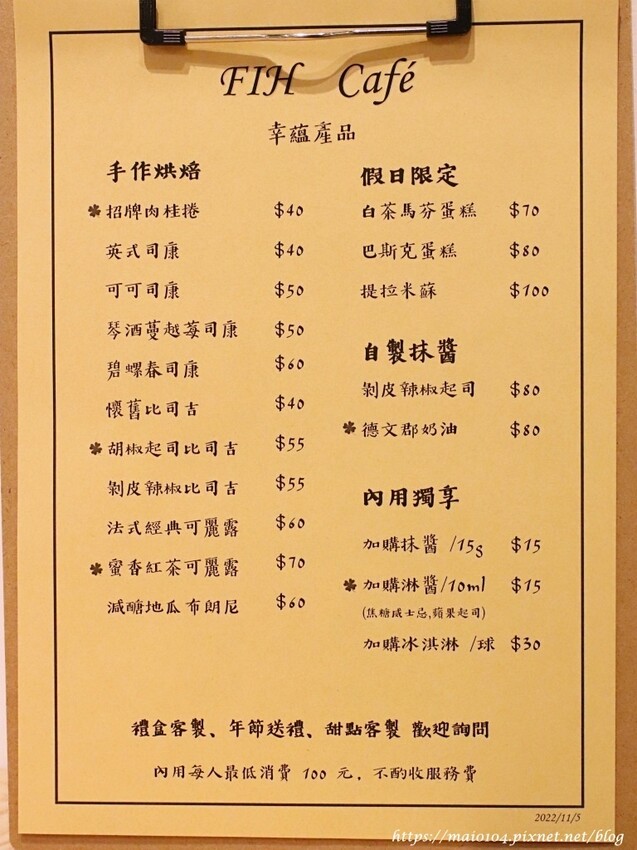 FIH Café
幸蘊產品
手作烘焙
招牌肉桂捲 $40
英式司康 $40
可可司康 $50
琴酒蔓越莓司康 $50
碧螺春司康 $60
懷舊比司吉 $40
胡椒起司比司吉 $55
剝皮辣椒比司吉 $55
法式經典可麗露 $60
蜜香紅茶可麗露 $70
減醣地瓜布朗尼 $60
假日限定
白茶馬芬蛋糕 $70
巴斯克蛋糕 $80
提拉米蘇 $100
自製抹醬
剝皮辣椒起司 $80
德文郡奶油 $80
內用獨享
加購抹醬 /15g $15
加購淋醬/10ml $15
(焦糖威士忌,蘋果起司)
加購冰淇淋 /球 $30
禮盒客製、年節送禮、甜點客製 歡迎詢問
內用每人最低消費 100 元，不酌收服務費
2022/11/5
https://maio104.pixnet.net/blog